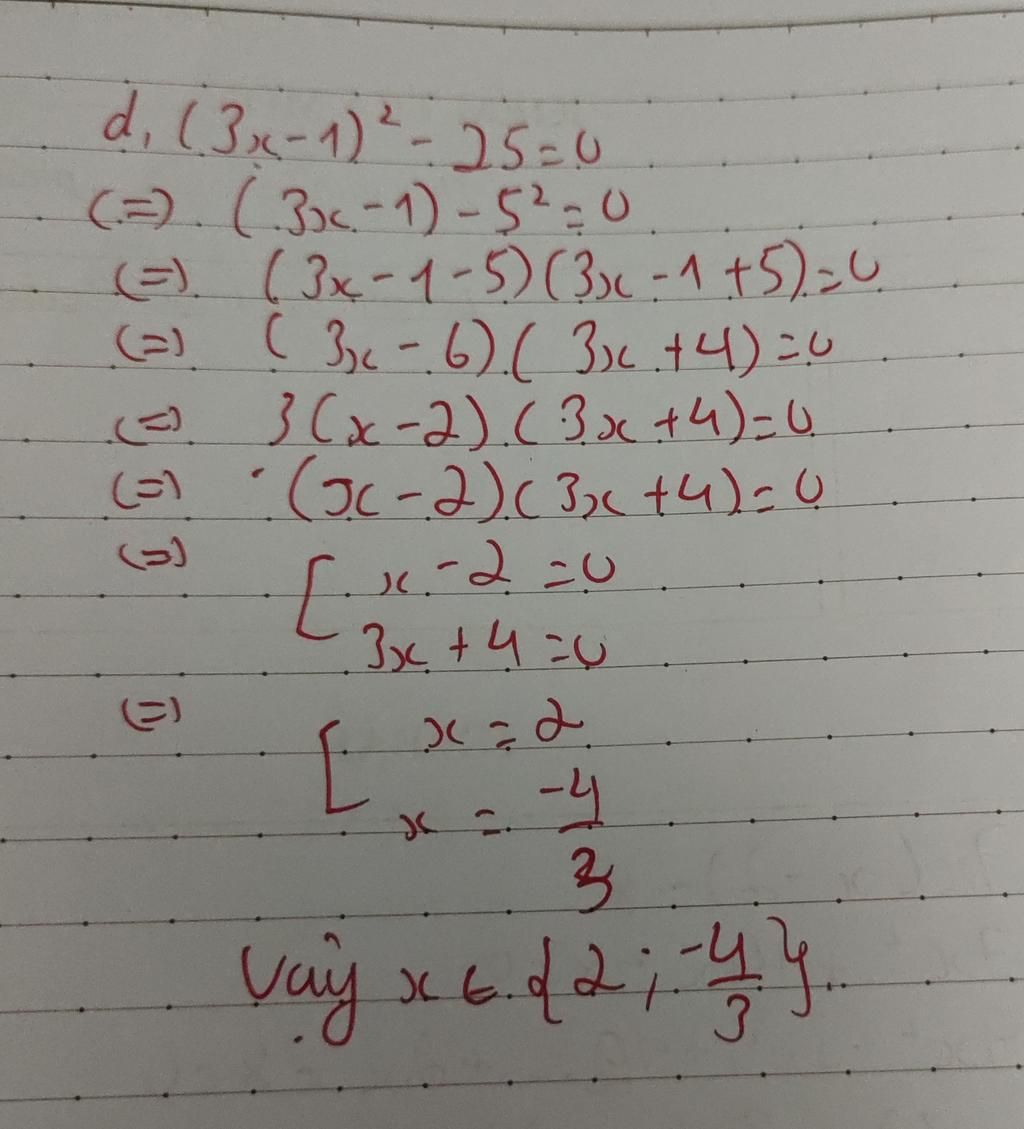 d, (3x-1)² - 25 = 0
(=) (3x-1) - 5² = 0
(=) (3x-1-5)(3x-1+5) = 0
(=) (3x-6)(3x+4) = 0
(=) 3(x-2)(3x+4) = 0
(=) (x-2)(3x+4) = 0
(=) [ x-2 = 0
3x+4 = 0
(=) [ x = 2
x = -4/3
Vậy x ∈ {2; -4/3}.